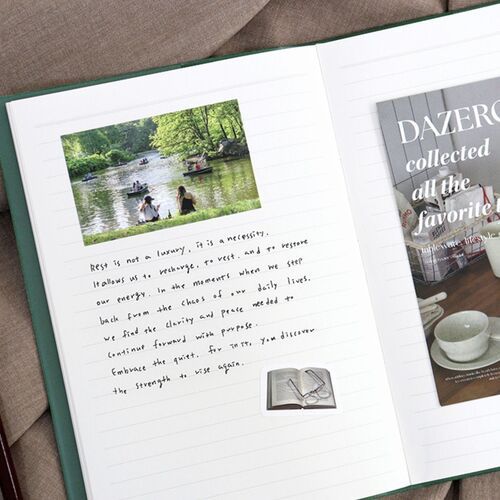 Rest is not a luxury, it is a necessity.
It allows us to recharge, to rest, and to restore
our energy. In the moments when we step
back from the chaos of our daily lives,
we find the clarity and peace needed to
continue forward with purpose.
Embrace the quiet, for in it, you discover
the strength to rise again.
DAZERO
collected
all the
favorite t
tableware, lifestyle